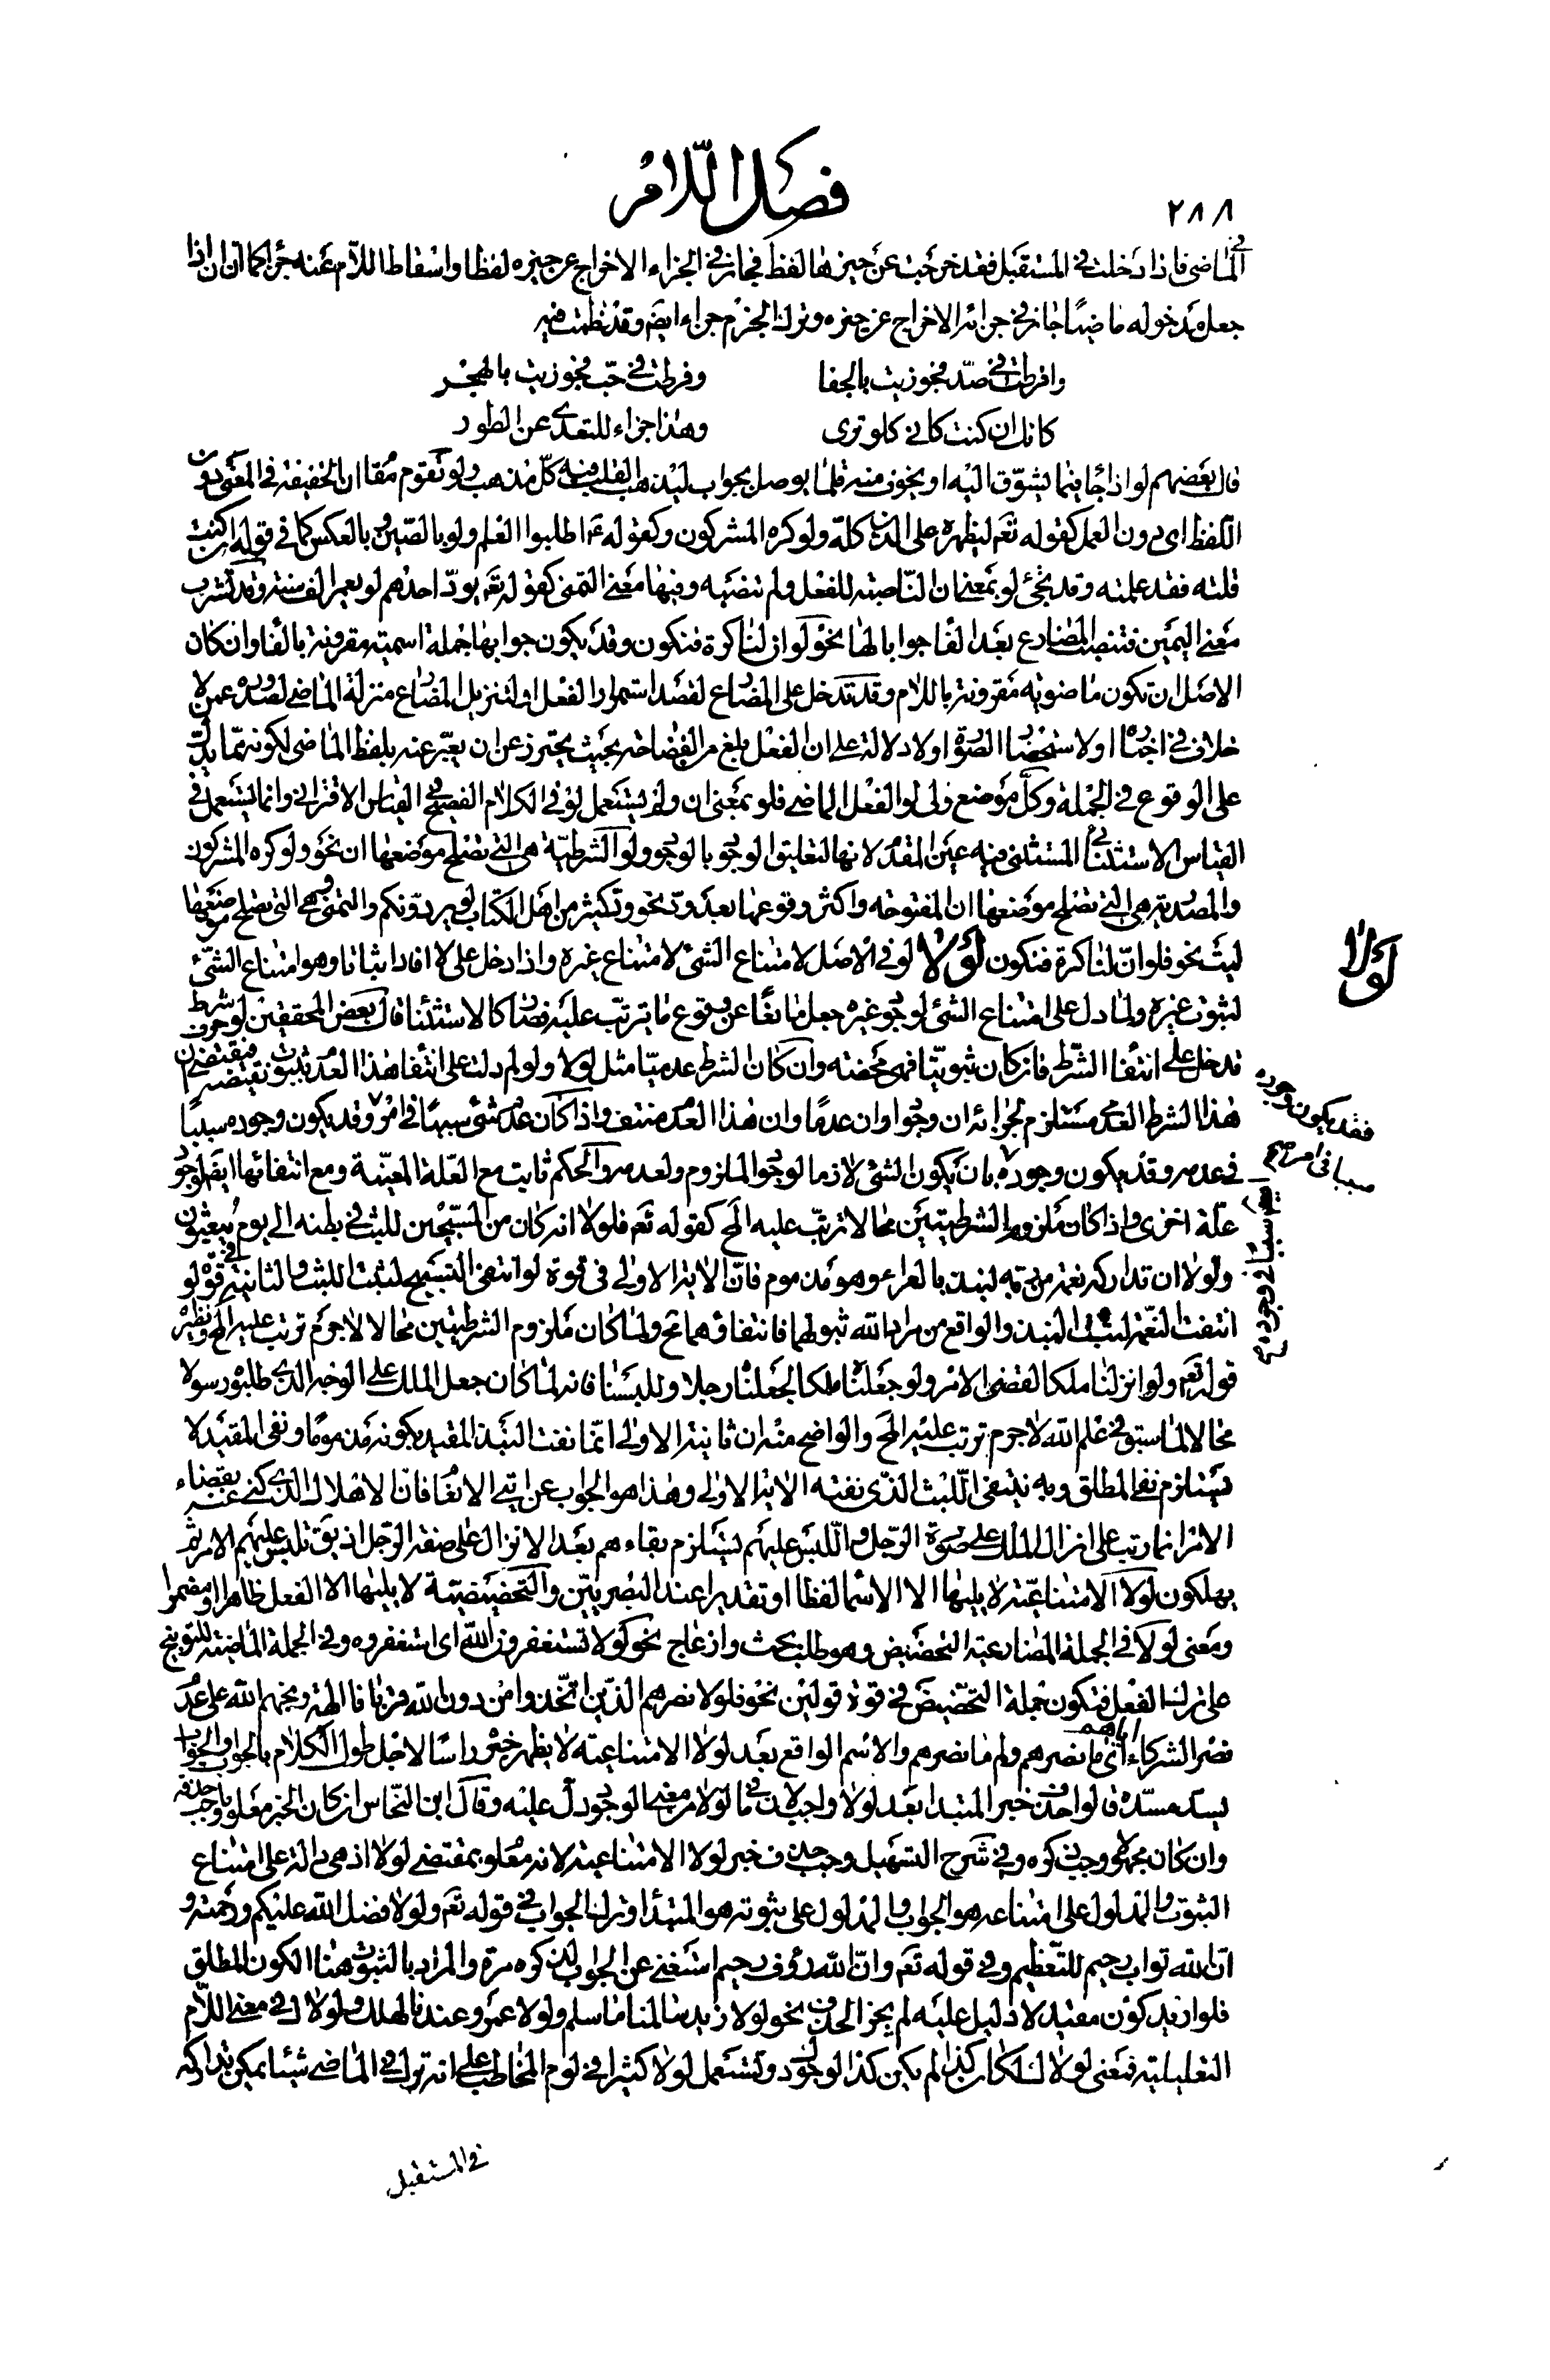 ٢٨٨
فصل اللام
في الماضي فاذا دخلت في المستقبل فقد خرجت عن حيزها لفظا فجاز في الجزاء الاخراج عن حيزه لفظا واسقاط اللام عنه جزاء كما ان ان اذا
جعل مدخوله ماضيا جاز في جزائه الاخراج عن حيزه وترك الجزم جزاء ايضا وقد نظمت فيه
وافرطت في صد فجوزيت بالجفا وفرطت في حب فجوزيت بالهجر
كانك ان كنت كاني كلو ترى وهذا جزاء للتعدى عن الطور
قال بعضهم لو اذا جاء فيما يشوق اليه او يخوف منه قلما يوصل بجواب ليذهب القلب فيه كل مذهب ولو تقوم مقام ان الخفيفة في المعنى دون
اللفظ اى دون العمل كقوله تع ليظهره على الدين كله ولو كره المشركون وكقوله ع اطلبوا العلم ولو بالصين وبالعكس كما في قوله ان كنت
قلته فقد علمته وقد يجئ لو بمعنى ان الناصبة للفعل ولم تنصبه وفيها معنى التمنى كقوله تع يود احدهم لو يعمر الف سنة وقد تشرب
معنى اليمين فتنصب المضارع بعد الفا جوابا لها نحو لو ان لنا كرة فنكون وقد يكون جوابها جملة اسمية مقرونة بالفا وان كان
الاصل ان تكون ماضوية مقرونة باللام وقد تدخل على المضارع لقصد استمرار الفعل او لتنزيل المضارع منزلة الماضى لصدوره عمن لا
خلاف في اخباره او لاستحضار الصورة او لا دلالة على ان الفعل بلغ من الفضاحة بحيث يحترز عن ان يعبر عنه بلفظ الماضى لكونه مما يدل
على الوقوع في الجملة وكل موضع ولى لو الفعل الماضى فلو بمعنى ان ولم يستعمل لو في الكلام الفصيح في القياس الاقترانى وانما يستعمل في
القياس الاستثنائي المستثنى فيه عين المقدم لانها لتعليق الوجود بالوجود ولو الشرطية هى التى تصلح موضعها ان نحو ولو كره المشركون
والمصدرية هى التى تصلح موضعها ان المفتوحة واكثر وقوعها بعد ود نحو ود كثير من اهل الكتاب لو يردونكم والتمنى هى التى تصلح موضعها
ليت نحو فلو ان لنا كرة فنكون لولا لو في الاصل لامتناع الشئ لامتناع غيره واذا دخل على لا افاد اثباتا وهو امتناع الشئ
لثبوت غيره ولما دل على امتناع الشئ لوجود غيره جعل مانعا عن وقوع ما يترتب عليه فصار كالاستثناء قال بعض المحققين لو حرف شرط
تدخل على انتفاء الشرط فان كان ثبوتيا فهى محضة وان كان الشرط عدميا مثل لولا ولو لم دلت على انتفاء هذا العدم بثبوت نقيضه فيقتضى ان
هذا الشرط العدمى مستلزم لجزائه ان وجودا وان عدما وان هذا العدم منتف واذا كان عدم شئ سببا في امر وقد يكون وجوده سببا
في عدمه وقد يكون وجوده بان يكون الشئ لازما لوجود الملزوم ولعدمه والحكم ثابت مع العلة المعينة ومع انتفائها ايضا لوجود
علة اخرى واذا كان ملزوم الشرطيتين محالا ترتب عليه المح كقوله تع فلولا انه كان من المسبحين للبث في بطنه الى يوم يبعثون
ولولا ان تداركه نعمة من ربه لنبذ بالعراء وهو مذموم فان الاية الاولى في قوة لو انتفى التسبيح لثبت اللبث والثانية في قوة لو
انتفت النعمة لثبت النبذ والواقع من مراد الله ثبوتهما فانتفاؤهما مح ولما كان ملزوم الشرطيتين محالا لا جرم ترتب عليه المح ونظيره
قوله تع ولو انزلنا ملكا لقضى الامر ولو جعلناه ملكا لجعلناه رجلا وللبسنا فانه لما كان جعل الملك على الوجه الذى طلبوه رسولا
محالا لما سبق في علم الله لا جرم ترتب عليه المح والواضح منه ان ثانية الاولى انما نفت النبذ المقيد بكونه مذموما ونفى المقيد لا
يستلزم نفى المطلق وبه ينتفى اللبث الذى نفته الاية الاولى وهذا هو الجواب عن ايتى الانعام فان الاهلاك الذى كنى عنه بقضاء
الامر انما رتب على انزال الملك على صورة الرجل واللبس عليهم يستلزم بقاءهم بعد الانزال على صفة الرجل اذ يقع تلبس عليهم الامر ثم
يهلكون لولا الامتناعية لا يليها الا الاسماء لفظا او تقديرا عند البصريين والتحضيضية لا يليها الا الفعل ظاهرا او مضمرا
ومعنى لولا في الجملة المضارعية التحضيض وهو طلب بحث وازعاج نحو لولا تستغفرون الله اى استغفروه وفي الجملة الماضية للتوبيخ
على ترك الفعل فتكون جملة التحضيض في قوة قولين نحو فلولا نصرهم الذين اتخذوا من دون الله قربانا الهة وبخهم الله على عدم
نصر الشركاء اياهم اى ما نصرهم ولم ما نصرهم والاسم الواقع بعد لولا الامتناعية لا يظهر خبره راسا لاجل طول الكلام بالجواب والجواب
يسد مسده قالوا حذف خبر المبتدا بعد لولا واجب لان في ما لولا من معنى الوجود دل عليه وقال ابن النحاس ان كان الخبر معلوما وجب حذفه
وان كان مجهولا وجب ذكره وفي شرح التسهيل وجب حذف خبر لولا الامتناعية لانه معلوم بمقتضى لولا اذ هى دالة على امتناع
الثبوت والمدلول على امتناعه هو الجواب والمدلول على ثبوته هو المبتدا وترك الجواب في قوله تع ولولا فضل الله عليكم ورحمته و
ان الله تواب رحيم للتعظيم وفي قوله تع وان الله رؤف رحيم استغنى عن الجواب لذكره مرة والمراد بالثبوت هنا الكون المطلق
فلو اريد كون مقيد لا دليل عليه لم يجز الحذف نحو لولا زيد سالمنا ما سلم ولولا عمرو عندنا لهلك ولولا في معنى اللام
التعليلية فمعنى لولاك لكان كذا لم يكن كذا لوجودك وتستعمل لولا كثيرا في لوم المخاطب على انه ترك في الماضى شيئا يمكن تداركه
في المستقبل
لولا
فقد يكون وجوده
سببا في امر